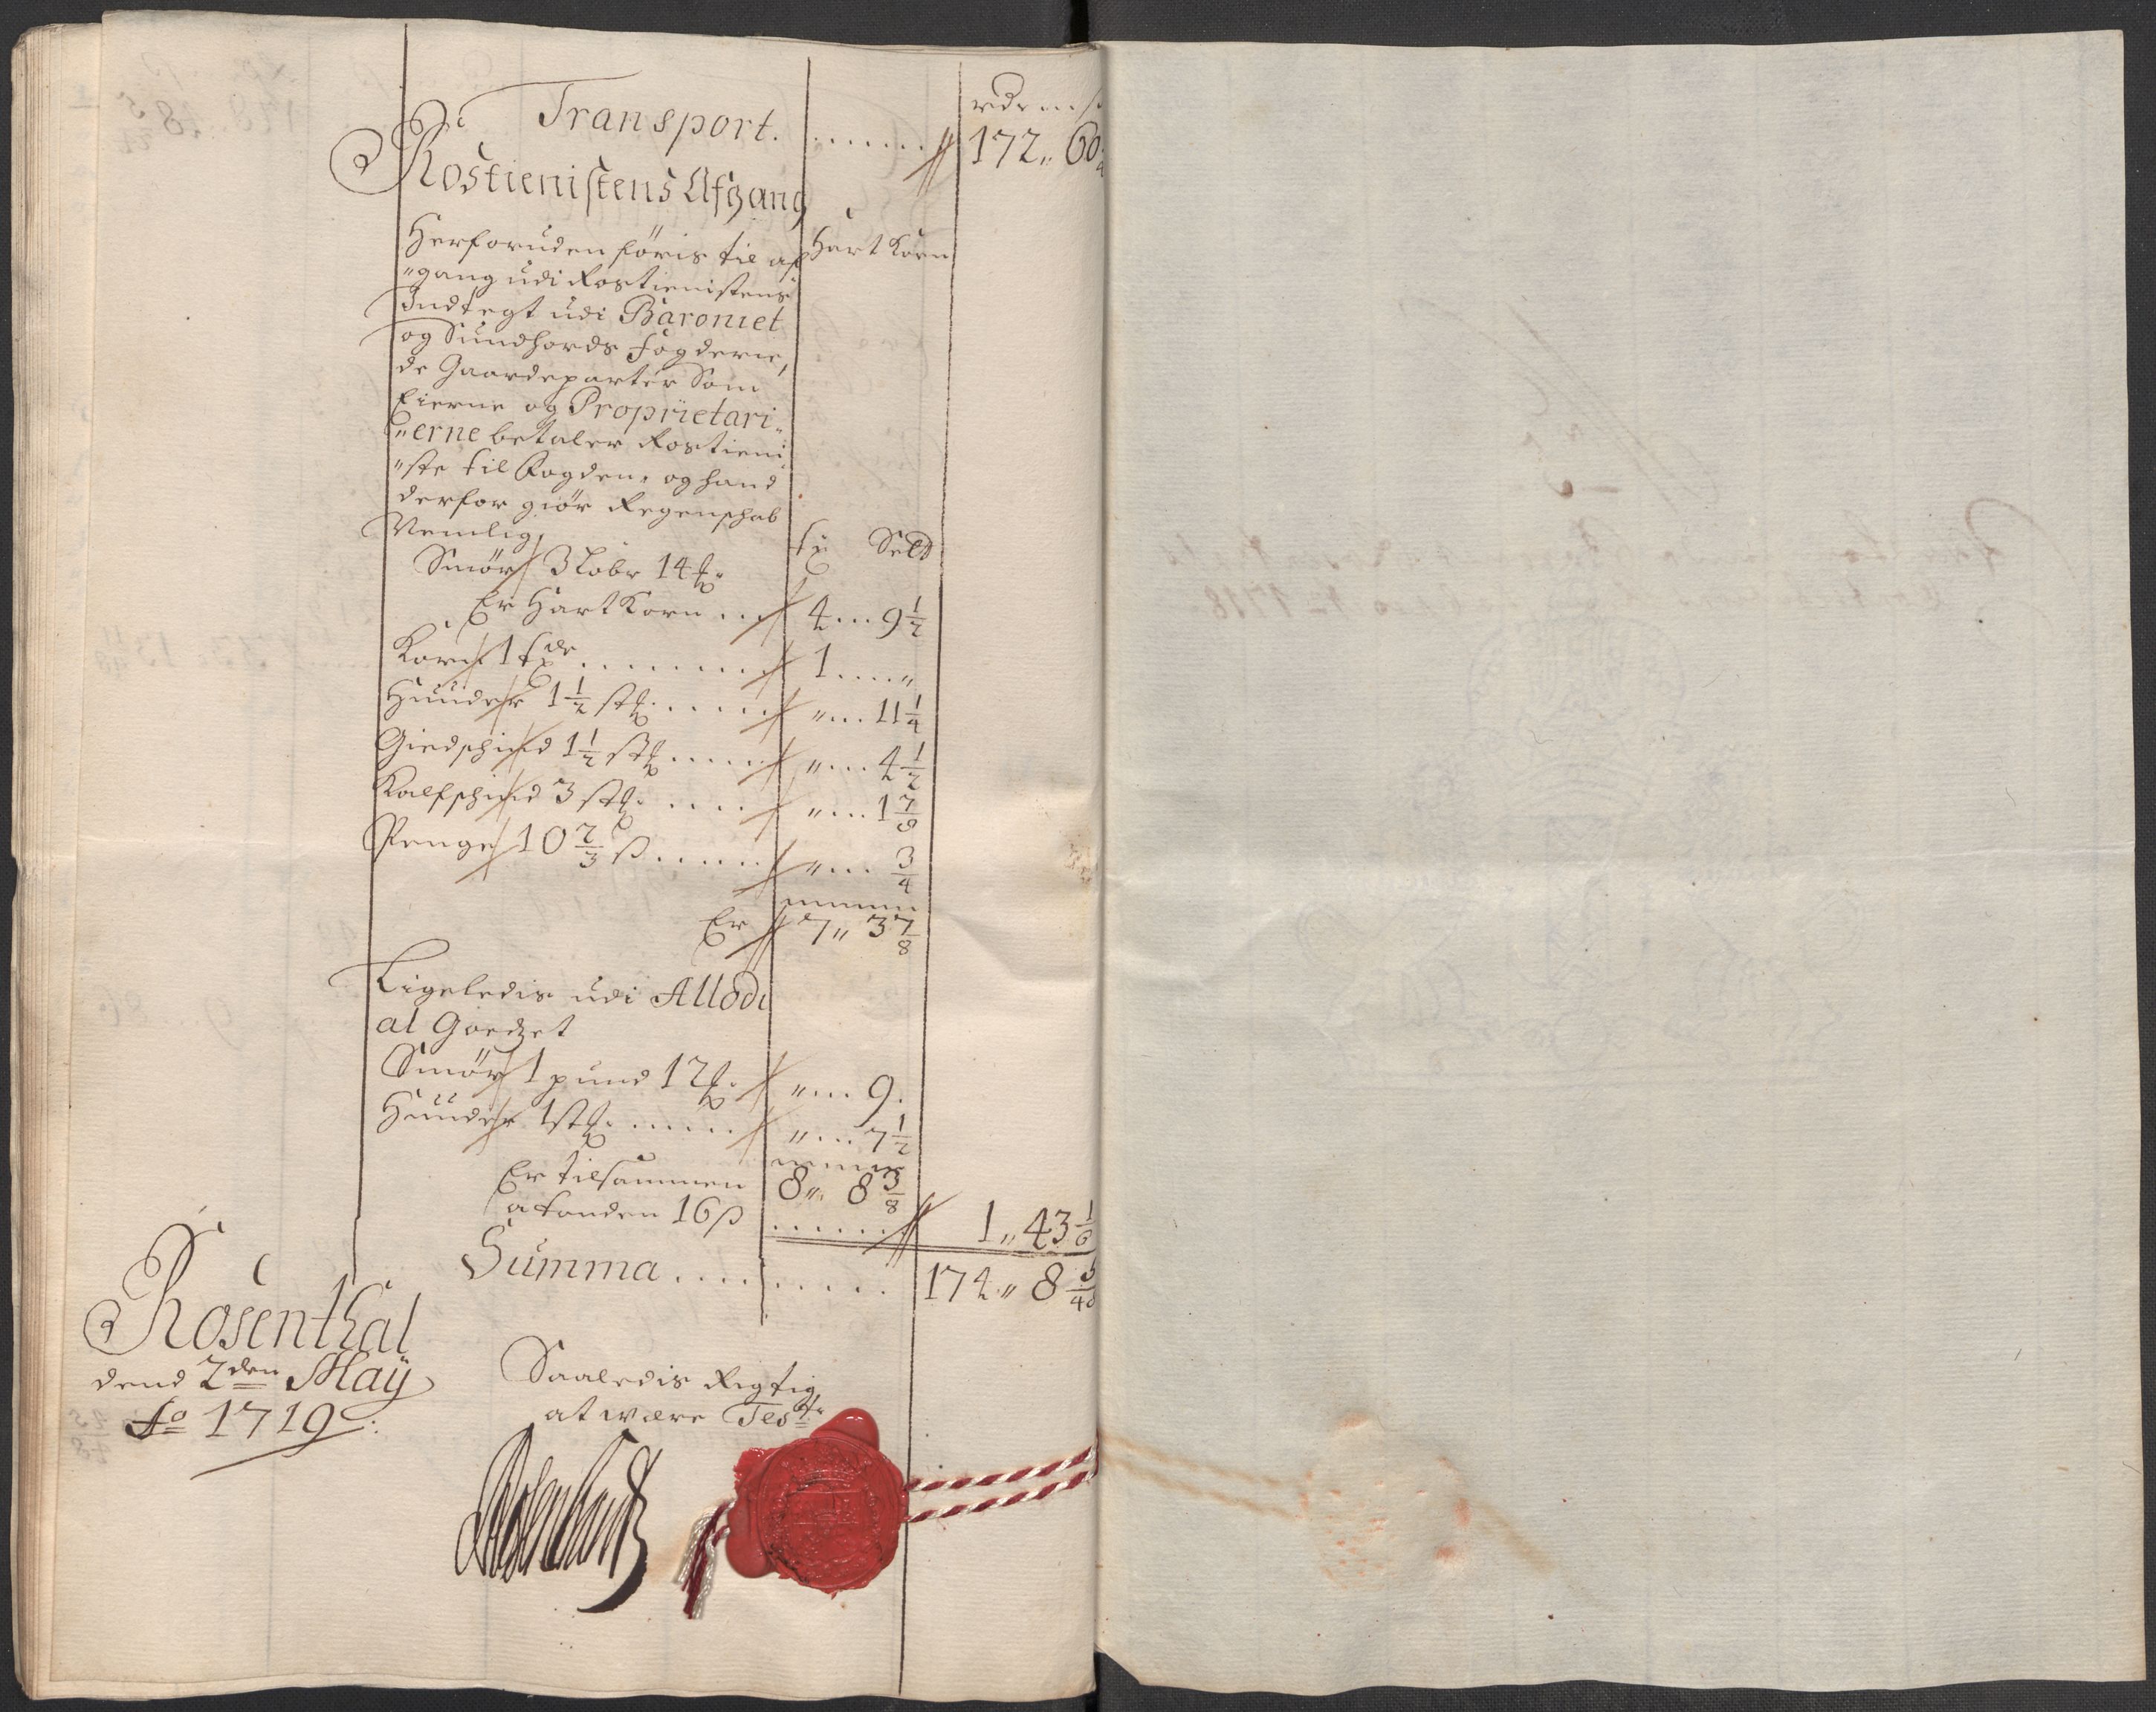 Transport. ....... 172„ 60
Rostienistens Afgang
Herforuden føris til af Hart Korn
„gang udi Rostienistens
Indtegt udi Baroniet
og Sundhords fogderie,
de Gaardeparter Som
Eierne og Proprietari„
„erne betaler Rostieni
„ste til Fogden, og hand
derfor giør Regenskab
Nemlig,
Smør 3 Løbr 14
Er Hart Korn ... 4 ... 9 1/2
Korn 1 ........ 1 .... „
Huuder 1 1/2 st ..... „ ... 11 1/4
Giedskind 1 1/2 st ..... „ ... 4 1/2
Kalfskind 3 st .... „ ... 1 7/8
Penge 10 2/3 ß ..... „ ... 3/4
Er 7„ 3 7/8
Ligeledis udi Allodi
al Goedzet
Smør 1 pund 12 „ ... 9.
Huuder 1 st ..... „ ... 7 1/2
Er tilsammen 8„ 8 3/8
a tønden 16 ß ...... 1„ 43 1/6
Summa ......... 174„ 8 5/48
Rosenthal
dend 2den May
Ao 1719
Saaledis Rigtig
at være Test: